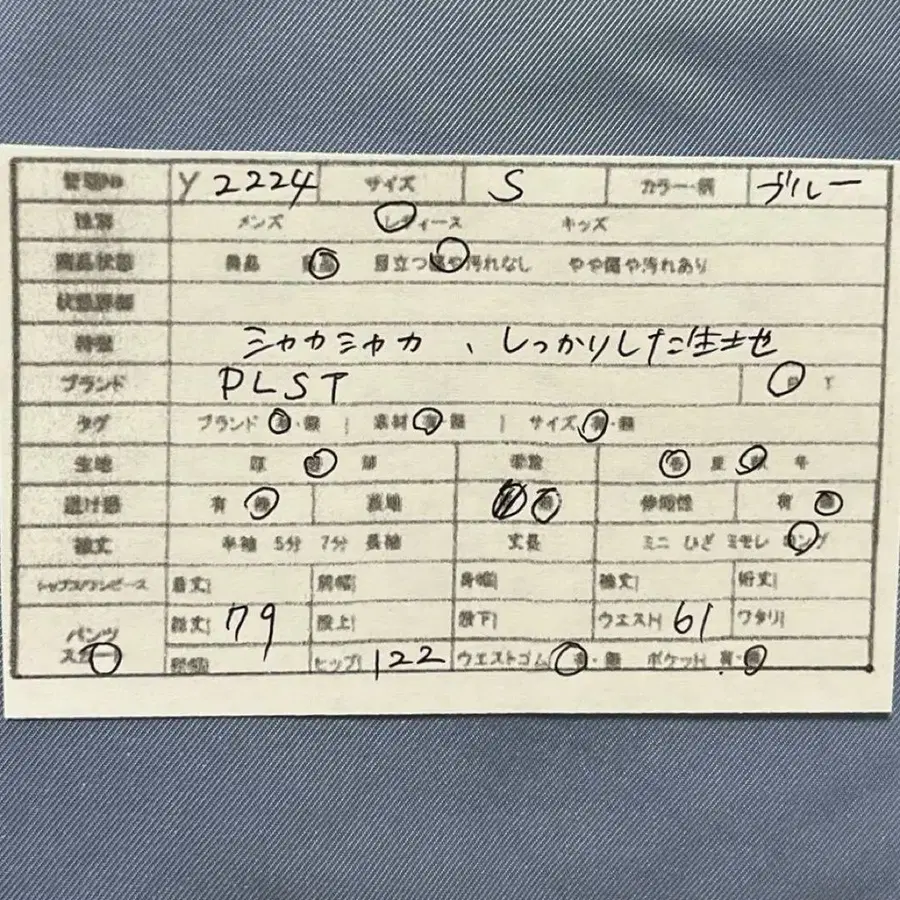 管理No Y 2224 サイズ S カラー・柄 ブルー
性別 メンズ レディース キッズ
商品状態 美品 良品 目立つ傷や汚れなし やや傷や汚れあり
状態詳細
特徴 シャカシャカ、しっかりした生地
ブランド PLST Y
タグ ブランド 有・無 | 素材 有・無 | サイズ 有・無
生地 厚 普 薄 季節 春 夏 秋 冬
透け感 有 無 裏地 伸縮性 有 無
袖丈 半袖 5分 7分 長袖 丈長 ミニ ひざ ミモレ ロング
トップス/ワンピース 着丈| 肩幅| 身幅| 袖丈| 裄丈|
パンツ 総丈| 79 股上| 股下| ウエスト| 61 ワタリ|
スカート 裾幅| ヒップ| 122 ウエストゴム 有・無 ポケット| 有・無